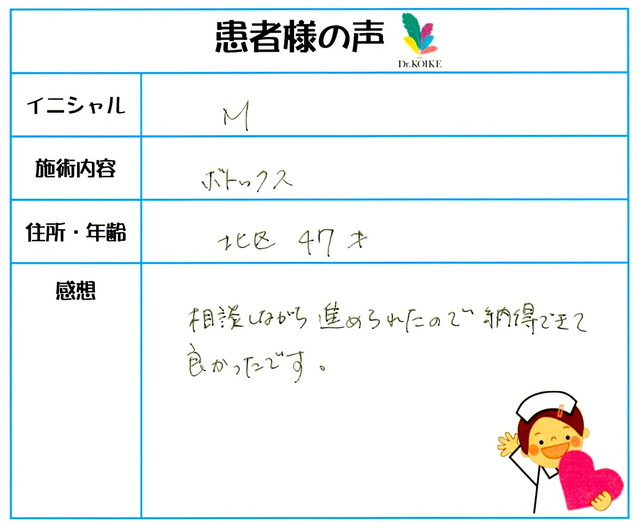 患者様の声
Dr.KOIKE
イニシャル
M
施術内容
ボトックス
住所・年齢
北区 47才
感想
相談しながら進められたので納得できて
良かったです。